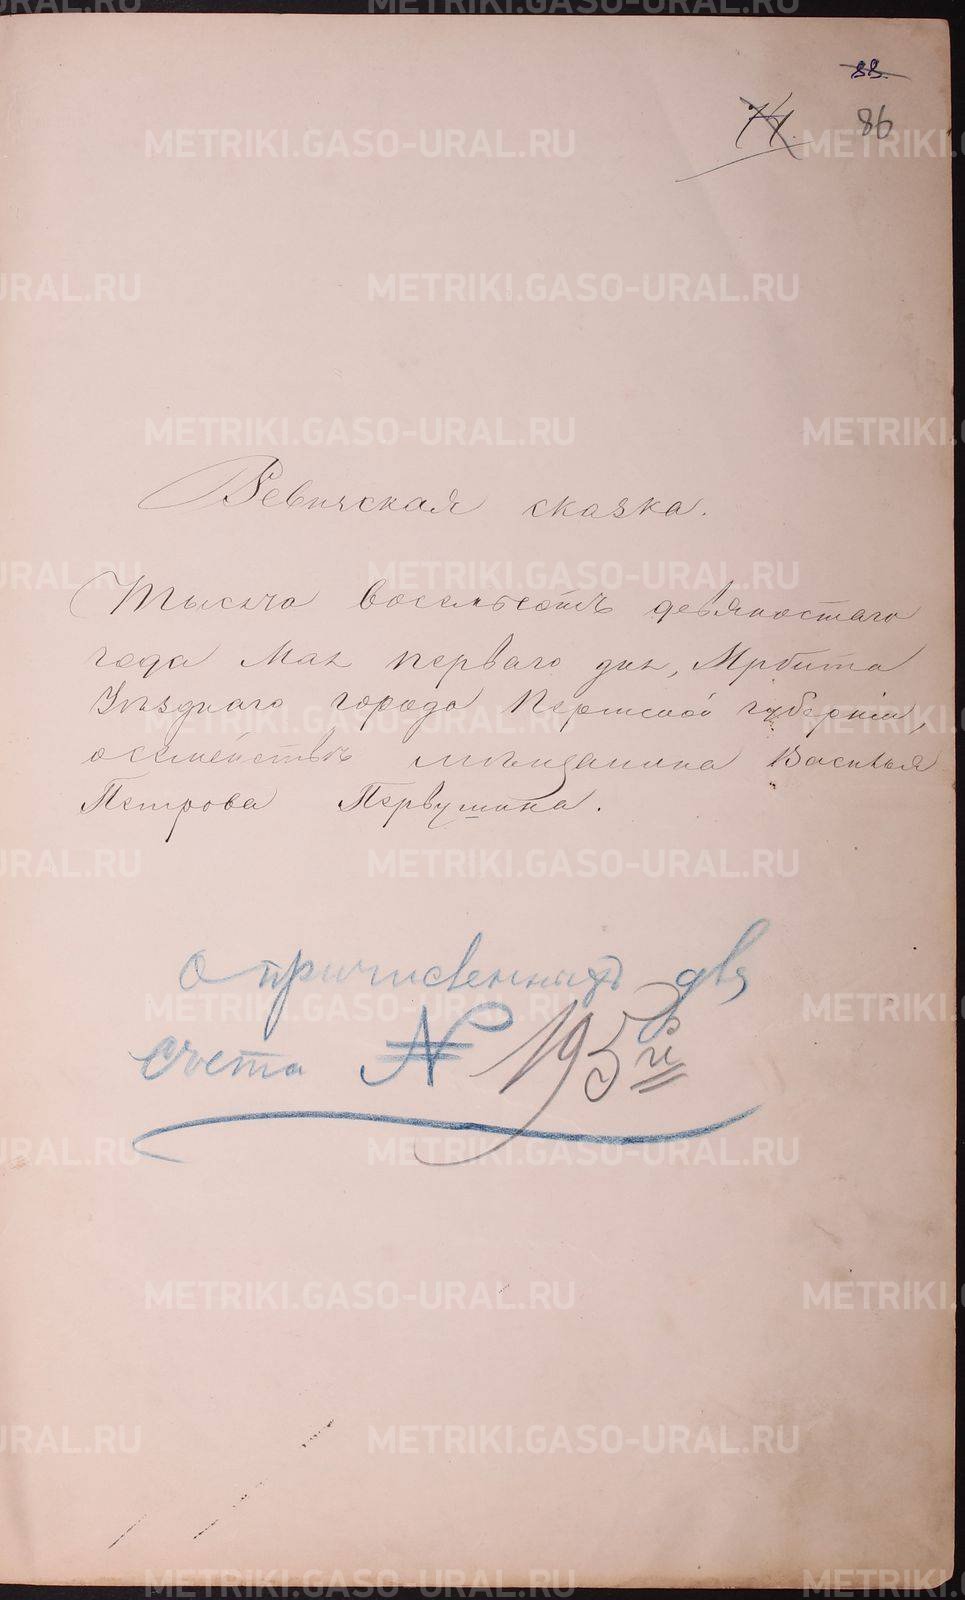 88.
71. 86
Ревизская сказка.
Тысяча восемьсотъ девяностаго
года Мая перваго дня, Ирбита
Уѣзднаго города Пермской губерніи,
о семействѣ мѣщанина Василья
Петрова Первушина.
о причисленныхъ для
счета № 195й
METRIKI.GASO-URAL.RU